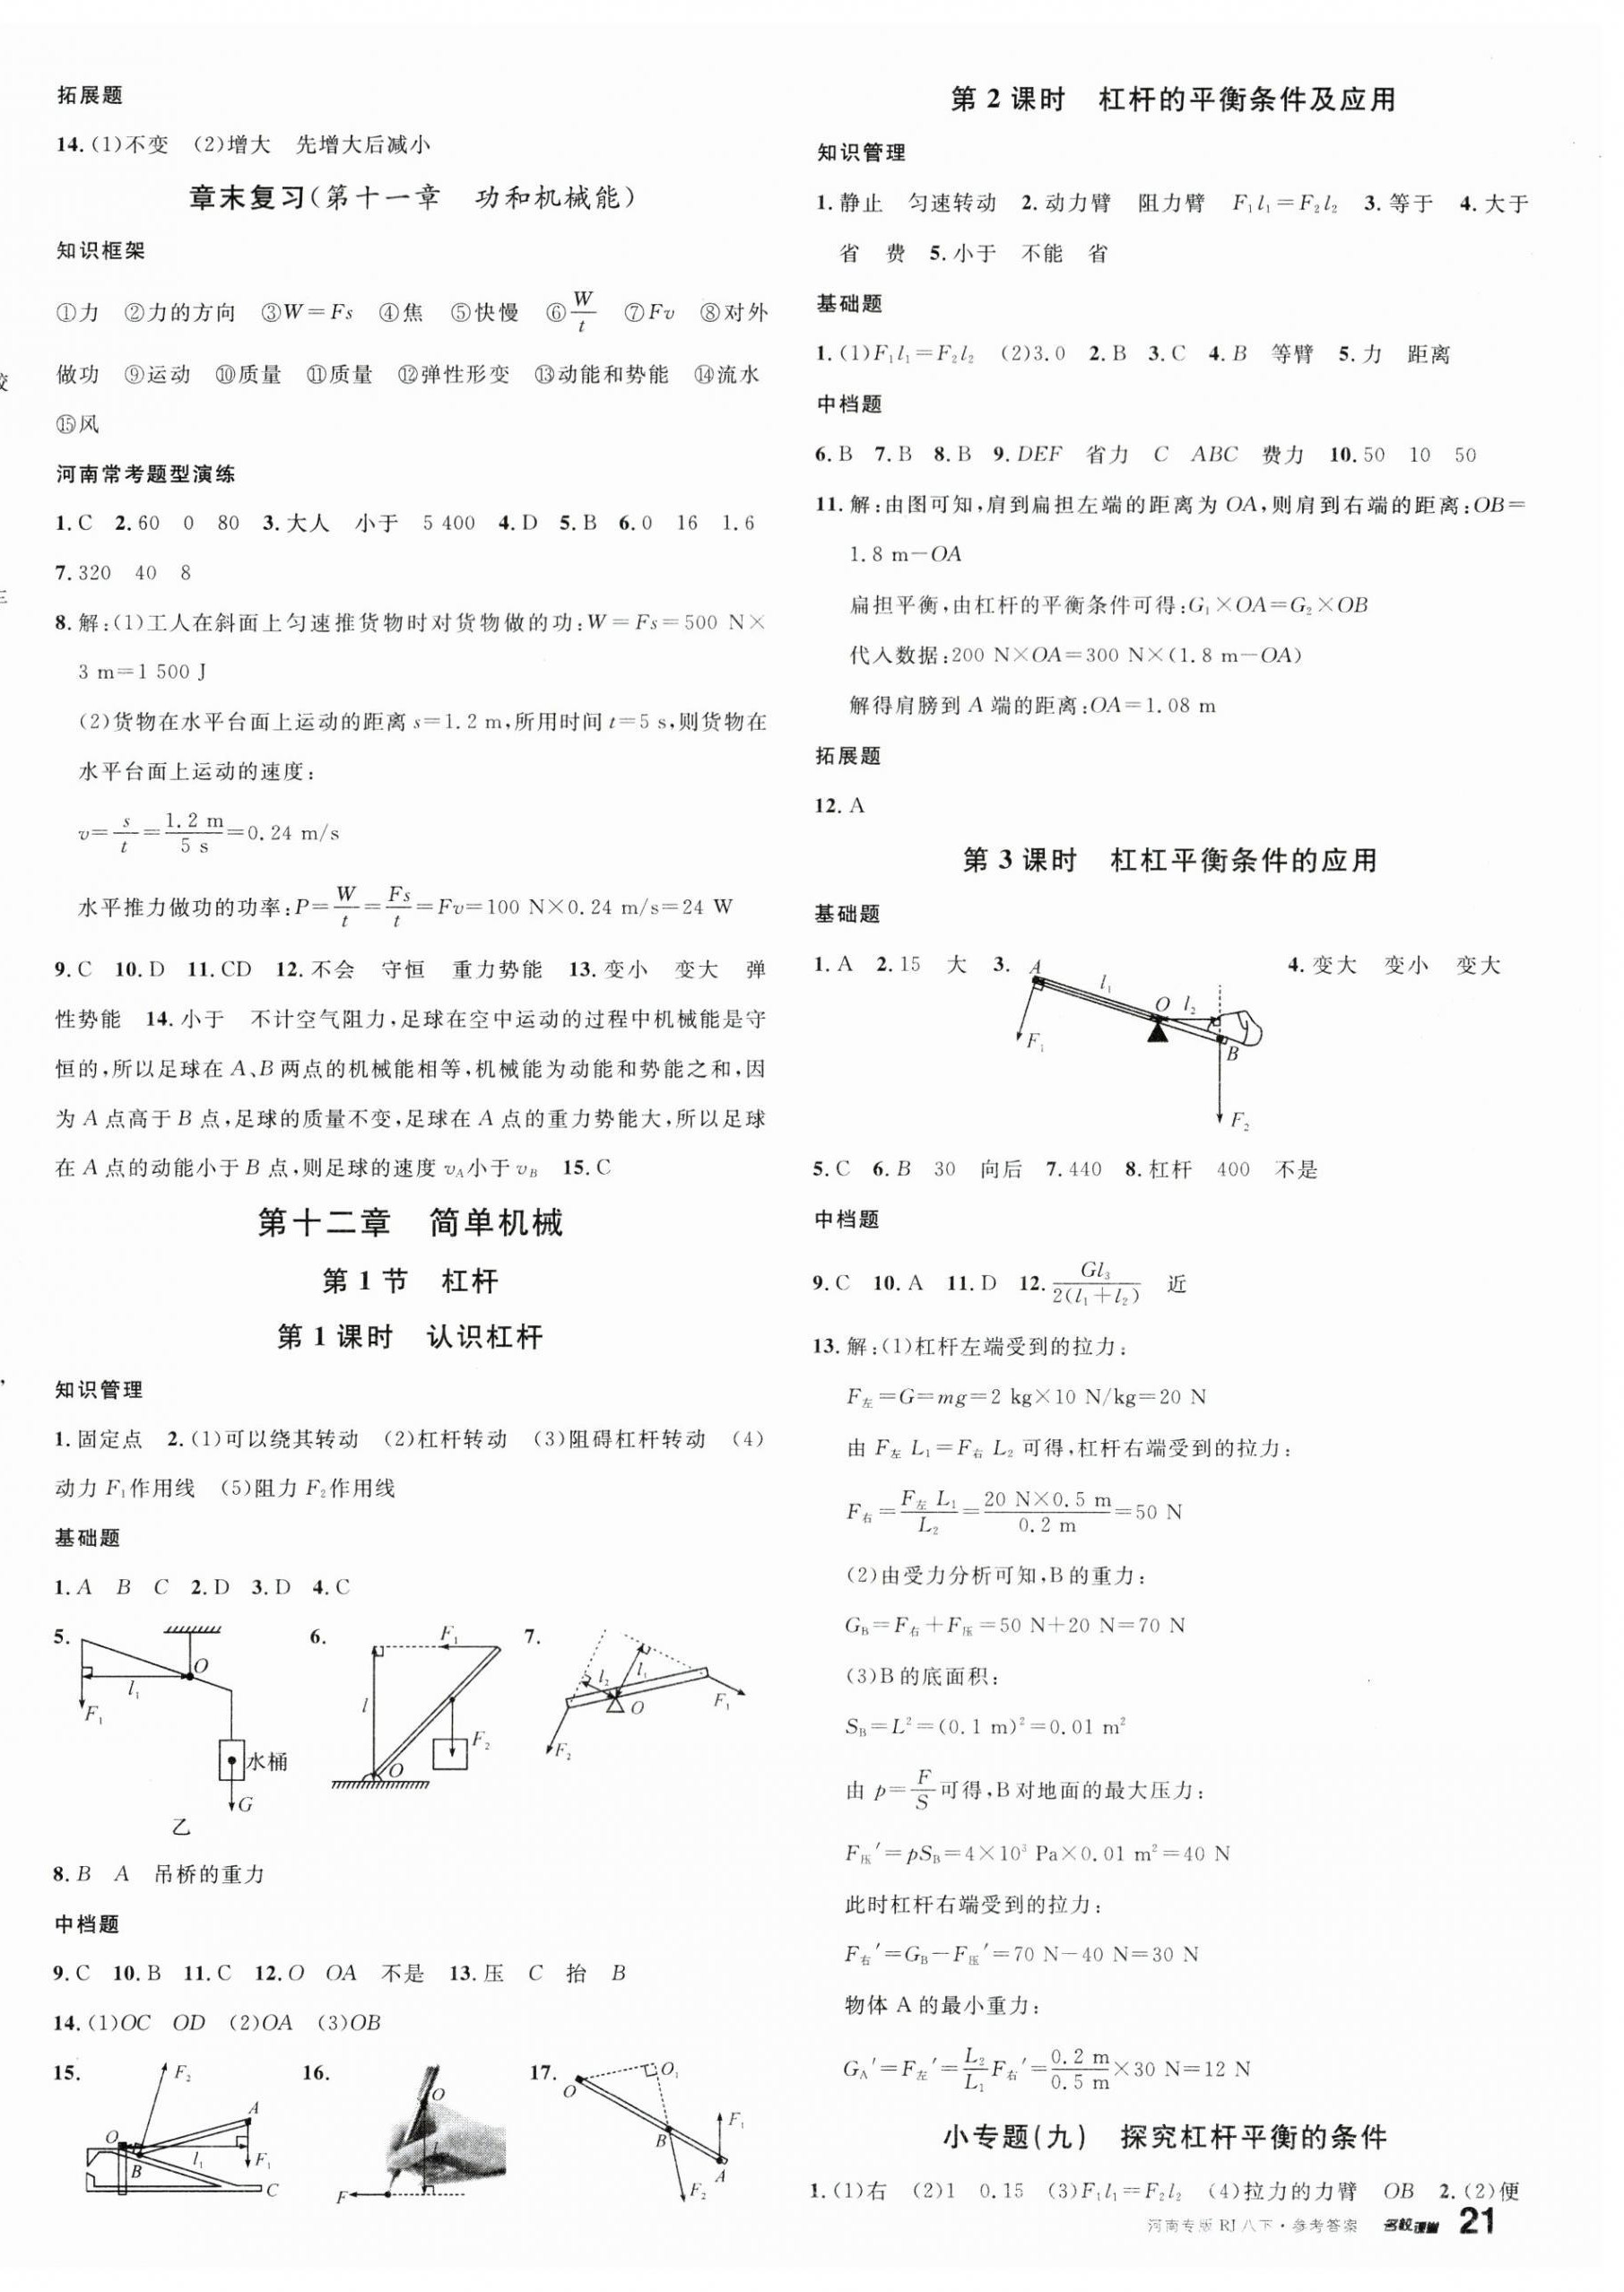 拓展题
14.(1)不变 (2)增大 先增大后减小
章末复习(第十一章 功和机械能)
知识框架
①力 ②力的方向 ③W=Fs ④焦 ⑤快慢 ⑥W/t ⑦Fv ⑧对外
做功 ⑨运动 ⑩质量 ⑪质量 ⑫弹性形变 ⑬动能和势能 ⑭流水
⑮风
河南常考题型演练
1.C 2.60 0 80 3.大人 小于 5 400 4.D 5.B 6.0 16 1.6
7.320 40 8
8.解:(1)工人在斜面上匀速推货物时对货物做的功:W=Fs=500 N×
3 m=1 500 J
(2)货物在水平台面上运动的距离 s=1.2 m,所用时间 t=5 s,则货物在
水平台面上运动的速度:
v=s/t=1.2 m/5 s=0.24 m/s
水平推力做功的功率:P=W/t=Fs/t=Fv=100 N×0.24 m/s=24 W
9.C 10.D 11.CD 12.不会 守恒 重力势能 13.变小 变大 弹
性势能 14.小于 不计空气阻力,足球在空中运动的过程中机械能是守
恒的,所以足球在 A、B 两点的机械能相等,机械能为动能和势能之和,因
为 A 点高于 B 点,足球的质量不变,足球在 A 点的重力势能大,所以足球
在 A 点的动能小于 B 点,则足球的速度 v_A小于 v_B 15.C
第十二章 简单机械
第 1 节 杠杆
第 1 课时 认识杠杆
知识管理
1.固定点 2.(1)可以绕其转动 (2)杠杆转动 (3)阻碍杠杆转动 (4)
动力 F₁作用线 (5)阻力 F₂作用线
基础题
1.A B C 2.D 3.D 4.C
5. O l₁ F₁ 水桶 G 乙
6. F₁ l O F₂
7. l₂ l₁ O F₁ F₂
8.B A 吊桥的重力
中档题
9.C 10.B 11.C 12.O OA 不是 13.压 C 抬 B
14.(1)OC OD (2)OA (3)OB
15. F₂ A O l₁ F₁ B C
16. O l F
17. O O₁ B F₁ A F₂
第 2 课时 杠杆的平衡条件及应用
知识管理
1.静止 匀速转动 2.动力臂 阻力臂 F₁l₁=F₂l₂ 3.等于 4.大于
省 费 5.小于 不能 省
基础题
1.(1)F₁l₁=F₂l₂ (2)3.0 2.B 3.C 4.B 等臂 5.力 距离
中档题
6.B 7.B 8.B 9.DEF 省力 C ABC 费力 10.50 10 50
11.解:由图可知,肩到扁担左端的距离为 OA,则肩到右端的距离:OB=
1.8 m-OA
扁担平衡,由杠杆的平衡条件可得:G₁×OA=G₂×OB
代入数据:200 N×OA=300 N×(1.8 m-OA)
解得肩膀到 A 端的距离:OA=1.08 m
拓展题
12.A
第 3 课时 杠杠平衡条件的应用
基础题
1.A 2.15 大 3. A l₁ O l₂ F₁ B F₂ 4.变大 变小 变大
5.C 6.B 30 向后 7.440 8.杠杆 400 不是
中档题
9.C 10.A 11.D 12.Gl₃/2(l₁+l₂) 近
13.解:(1)杠杆左端受到的拉力:
F左=G=mg=2 kg×10 N/kg=20 N
由 F左 L₁=F右 L₂ 可得,杠杆右端受到的拉力:
F右=F左 L₁/L₂=20 N×0.5 m/0.2 m=50 N
(2)由受力分析可知,B的重力:
G_B=F右+F压=50 N+20 N=70 N
(3)B的底面积:
S_B=L²=(0.1 m)²=0.01 m²
由 p=F/S可得,B对地面的最大压力:
F压′=pS_B=4×10³ Pa×0.01 m²=40 N
此时杠杆右端受到的拉力:
F右′=G_B-F压′=70 N-40 N=30 N
物体 A 的最小重力:
G_A′=F左′=L₂/L₁F右′=0.2 m/0.5 m×30 N=12 N
小专题(九) 探究杠杆平衡的条件
1.(1)右 (2)1 0.15 (3)F₁l₁=F₂l₂ (4)拉力的力臂 OB 2.(2)便
河南专版 RJ 八下·参考答案 名校课堂 21